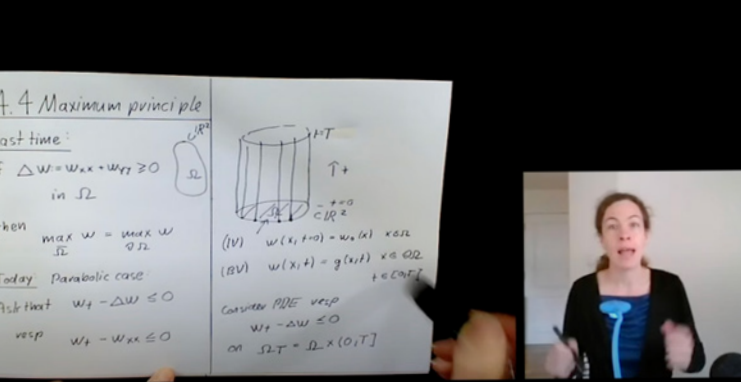 4.4 Maximum principle
ast time:
⊂ℝ²
Δw:=wxx+wyy ≥0
Ω
in Ω
hen
max w = max w
Ω̄ ∂Ω
Today Parabolic case:
Ask that wt - Δw ≤0
resp wt - wxx ≤0
t=T
↑t
t=0
Ω
⊂ℝ²
(IV) w(x,t=0) = w₀(x) x∈Ω
(BV) w(x,t) = g(x,t) x∈∂Ω
t∈[0,T]
Consider PDE resp
wt - Δw ≤0
on ΩT = Ω×(0,T]